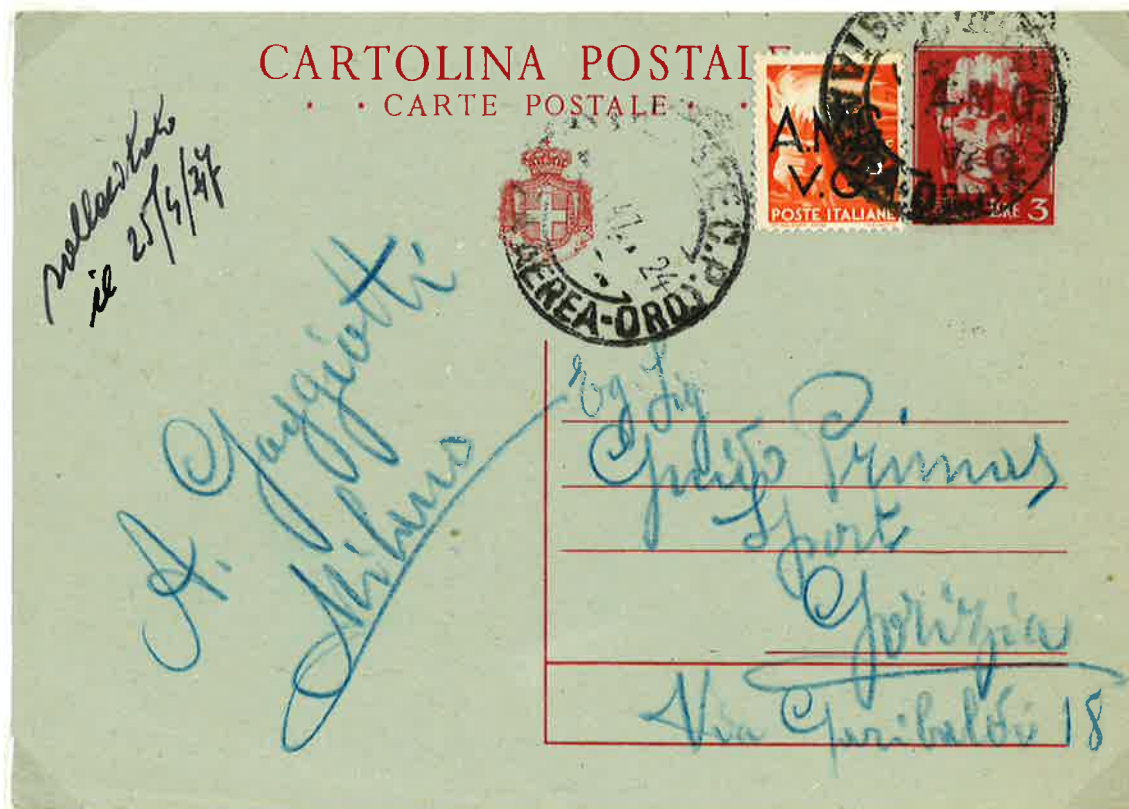 CARTOLINA POSTALE
· · CARTE POSTALE · ·
A.M.G.
V.G.
POSTE ITALIANE
A.M.G.
V.G.
LIRE 3
TRIESTE C.P.
47.. 24
AEREA-ORD.
il 25/4/47
A. Gaggiotti
Milano
Eg. Sig
Guido Primas
Sport
Gorizia
Via Garibaldi 18